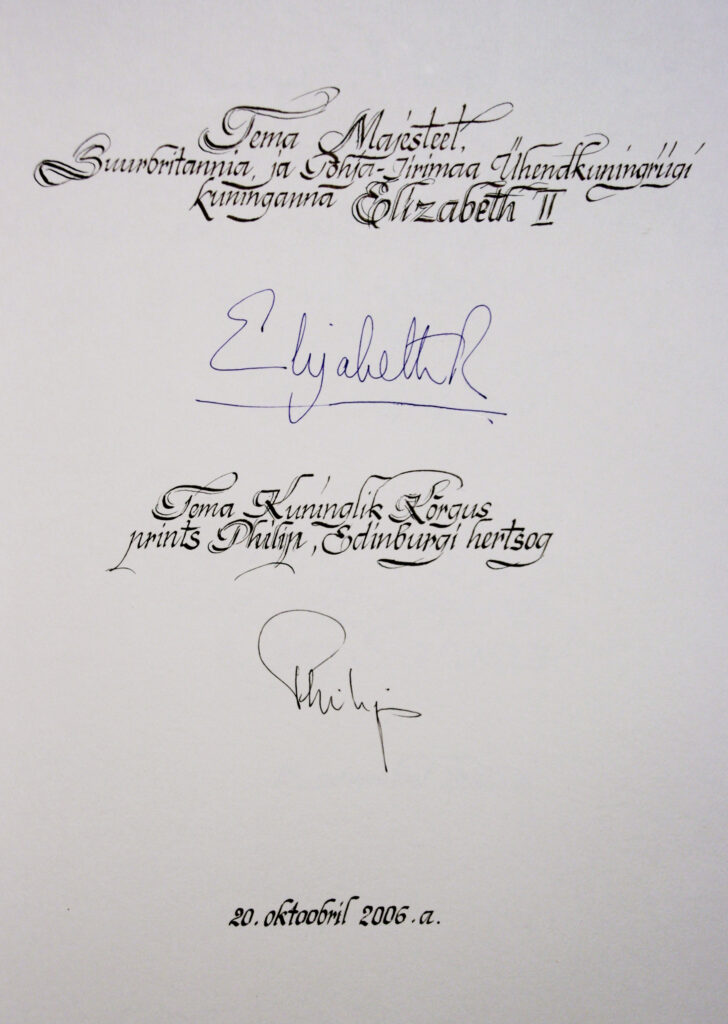 Tema Majesteet,
Suurbritannia, ja Põhja-Iirimaa Ühendkuningriigi
kuninganna Elizabeth II
Elizabeth R
Tema Kuninglik Kõrgus
prints Philip, Edinburgi hertsog
Philip
20. oktoobril 2006.a.